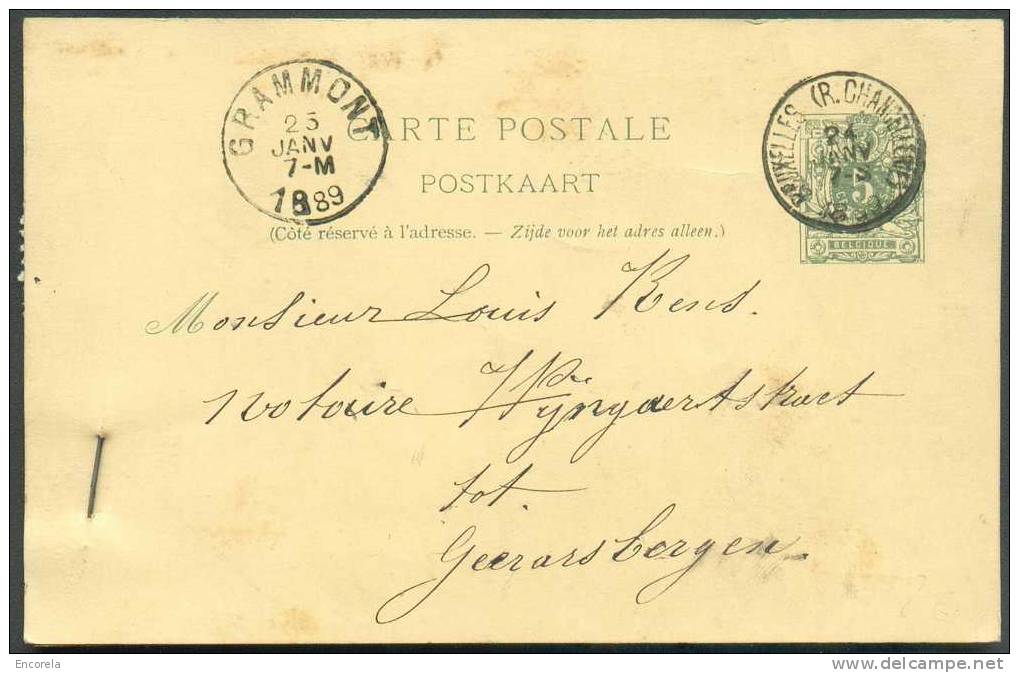 GRAMMONT
25
JANV
7-M
1889
BRUXELLES (R. CHANCELLERIE)
24
JANV
7-S
1889
5
BELGIQUE
CARTE POSTALE
POSTKAART
(Côté réservé à l'adresse. — Zijde voor het adres alleen.)
Monsieur Louis Rens.
Notaire Wyngaertstraet
tot.
Geerarsbergen.
Encorela
www.delcampe.net